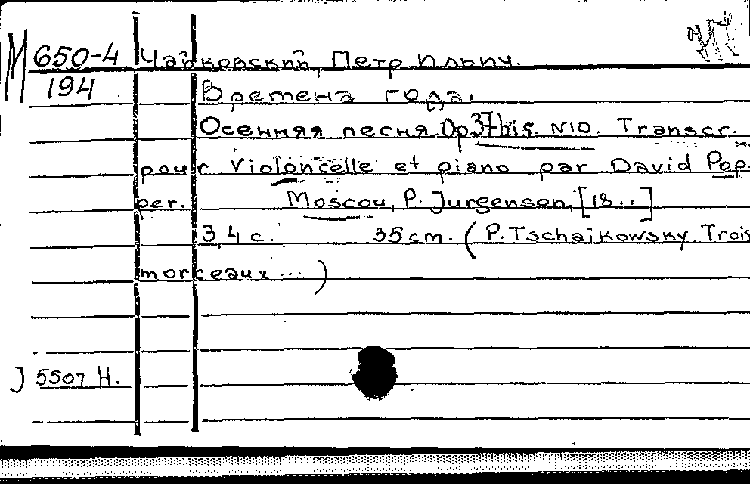 М 650-4 Чайковский, Петр Ильич.
194 Времена года.
Осенняя песня. Op. 37 bis. N10. Transcr.
pour violoncelle et piano par David Pop-
per. Moscou, P. Jurgenson, [18..]
3,4 с. 35 cm. (P. Tschaikowsky. Trois
morceaux ...)
J 5507 H.